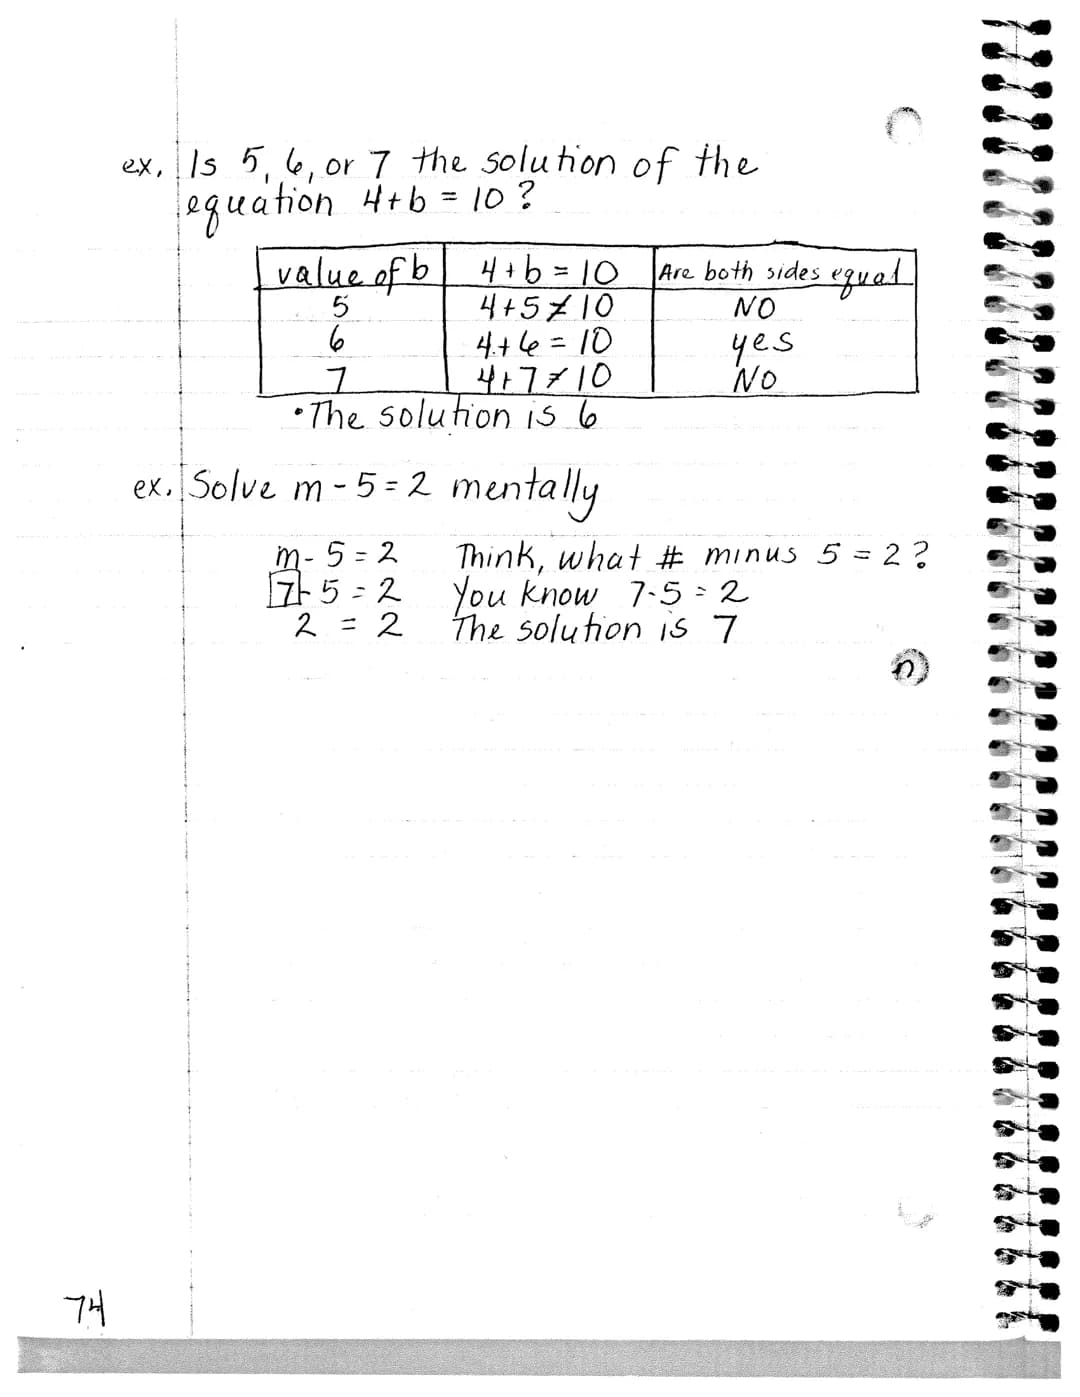 ex. Is 5, 6, or 7 the solution of the
equation 4+b = 10 ?
value of b 4+b = 10 Are both sides equal
5 4+5 ≠ 10 NO
6 4+6 = 10 yes
7 4+7 ≠ 10 NO
• The solution is 6
ex. Solve m - 5 = 2 mentally
m - 5 = 2 Think, what # minus 5 = 2 ?
7 - 5 = 2 You know 7-5 = 2
2 = 2 The solution is 7
74